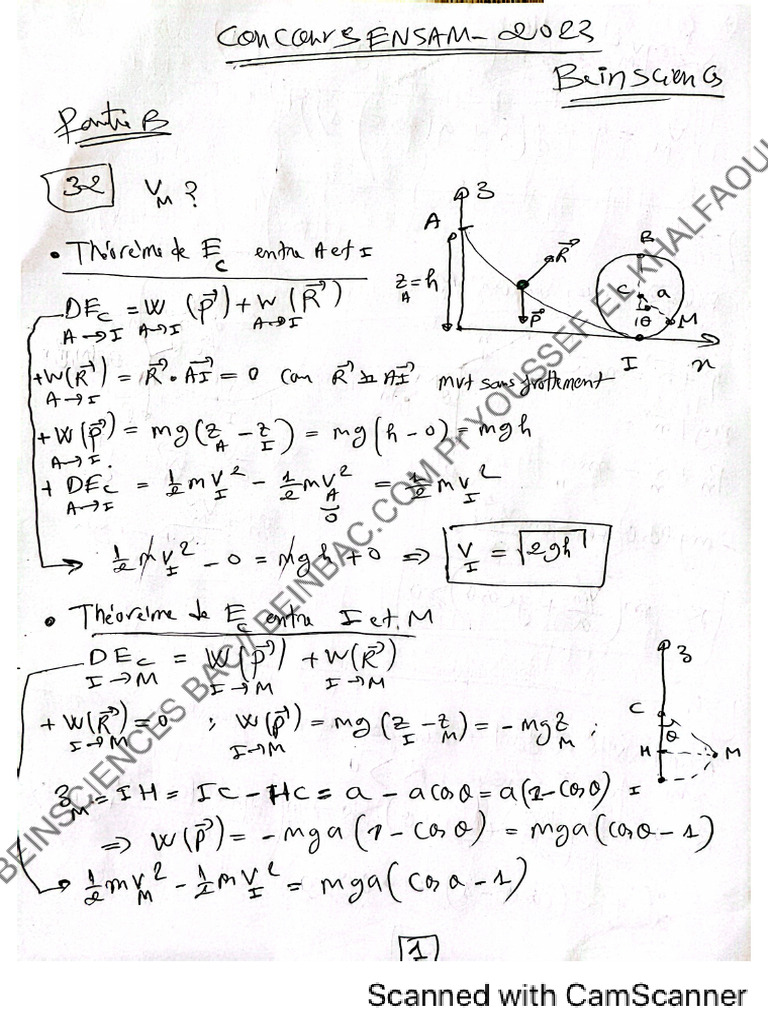 Concours ENSAM-2023
Beinsciences
Partie B
32 V_M ?
• Théorème de E_C entre A et I
ΔE_C = W(P⃗) + W(R⃗)
A→I A→I A→I
+W(R⃗) = R⃗ • AI⃗ = 0 car R⃗ ⊥ AI⃗ mvt sans frottement
A→I
+W(P⃗) = mg(z_A - z_I) = mg(h - 0) = mgh
A→I
+ ΔE_C = 1/2 m V_I² - 1/2 m V_A² = 1/2 m V_I²
A→I 0
1/2 m V_I² - 0 = mgh + 0 ⇒ V_I = √2gh
z
A
z_A = h
R⃗
P⃗
B
C a
θ
M
I x
• Théorème de E_C entre I et M
ΔE_C = W(P⃗) + W(R⃗)
I→M I→M I→M
+ W(R⃗) = 0 ; W(P⃗) = mg(z_I - z_M) = -mg z_M ;
I→M I→M
z_M = IH = IC - HC = a - a cosθ = a(1 - cosθ)
⇒ W(P⃗) = -mga(1 - cosθ) = mga(cosθ - 1)
1/2 m V_M² - 1/2 m V_I² = mga(cosθ - 1)
z
C
θ
H
M
I
1
BEINSCIENCES BAC// BEINBAC.COM Pr YOUSSEF EL KHALFAOUI
Scanned with CamScanner